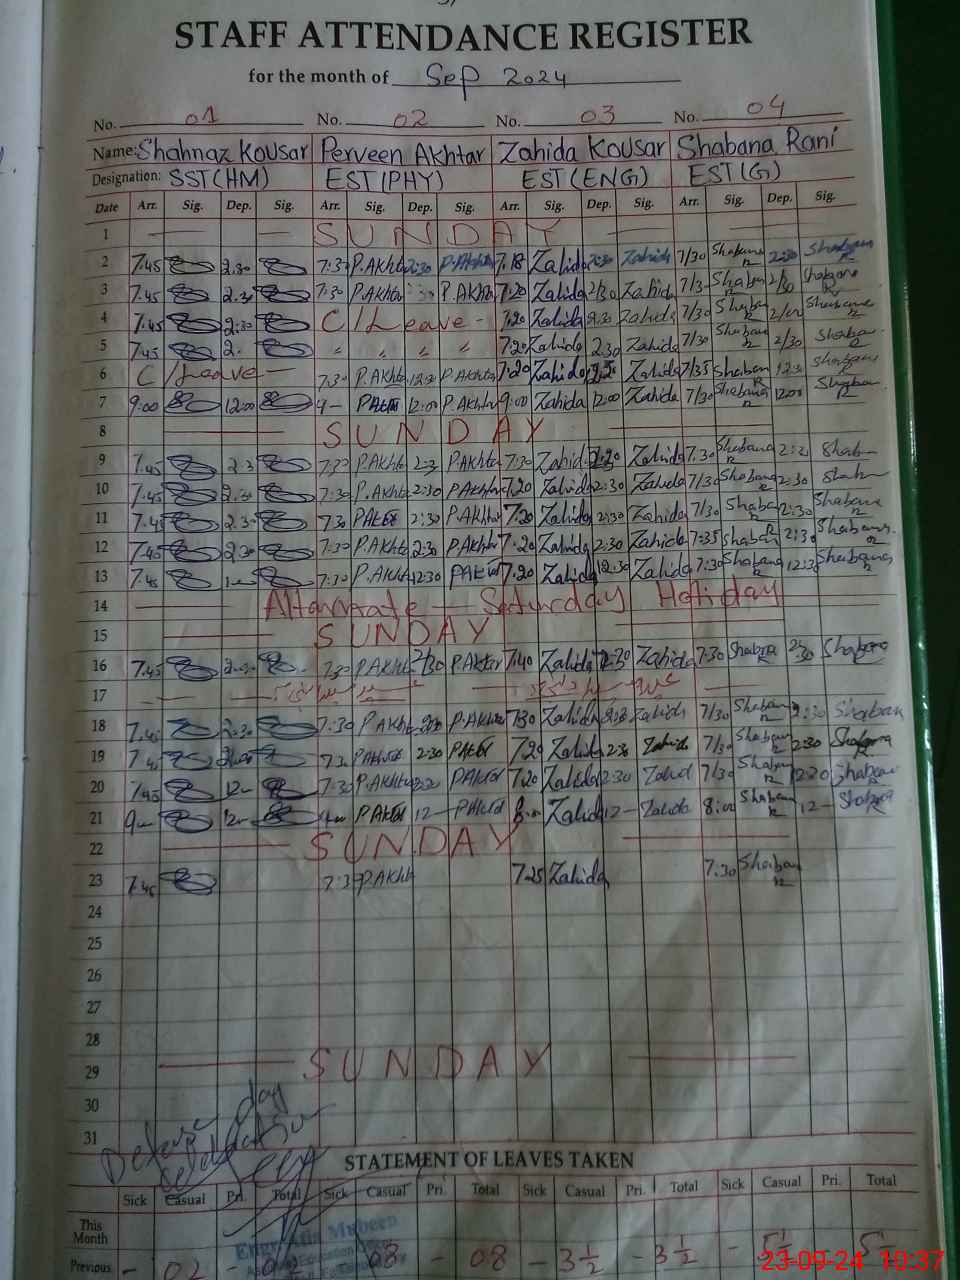 STAFF ATTENDANCE REGISTER
for the month of Sep 2024
No. 01 No. 02 No. 03 No. 04
Name: Shahnaz Kousar Perveen Akhtar Zahida Kousar Shabana Rani
Designation: SST(HM) EST(PHY) EST(ENG) EST(G)
Date Arr. Sig. Dep. Sig. Arr. Sig. Dep. Sig. Arr. Sig. Dep. Sig. Arr. Sig. Dep. Sig.
1 SUNDAY
2 7.45 2.30 7:30 P.Akhtar 2:30 P.Akhtar 7.18 Zahida 2:30 Zahida 7/30 Shabana R 2:30 Shabana R
3 7.45 2.30 7:30 P.Akhtar P.Akhtar 7.20 Zahida 2/30 Zahida 7/30 Shabana R 2/30 Shabana R
4 7.45 2:30 C/Leave - 7.20 Zahida 2.30 Zahida 7/30 Shabana R Shabana R
5 7.45 2. " " " " 7.20 Zahida 2.30 Zahida 7/30 Shabana R 2/30 Shabana R
6 C/Leave - 7:30 P.Akhtar 12:30 P.Akhtar 7.20 Zahida Zahida 7/35 Shabana R 12:30 Shabana R
7 9.00 12:00 PAkhtar 12:00 P.Akhtar 9:00 Zahida 12:00 Zahida 7/30 Shabana R 12:00 Shaban R
8 SUNDAY
9 7.45 2.3 7:30 P.Akhtar 2:3 P.Akhtar 7:30 Zahida Zahida 7:30 Shabana R Shab
10 7.45 2.30 7:30 P.Akhtar 2:30 PAkhtar 7.20 Zahida 2:30 Zahida 7/30 Shabana R 2:30 Shab
11 7.45 2.30 7:30 PAkhtar 2:30 P.Akhtar 7.20 Zahida 2:30 Zahida 7/30 Shabana R 2:30 Shabana R
12 7.45 2.30 7:30 P.Akhtar 2:30 PAkhtar 7.20 Zahida 2:30 Zahida 7:35 Shaban R 2:30 Shabana R
13 7.45 7:30 P.Akhtar 12:30 PAkhtar 7.20 Zahida 12:30 Zahida 7:30 Shabana R 12:30 Shabana R
14 Alternate - Saturday Holiday
15 SUNDAY
16 7.45 2.30 7:30 P.Akhtar 2/30 P.Akhtar 7:40 Zahida 2:30 Zahida 7:30 Shabana R 2:30 Shabana R
17
18 7.45 2.30 7:30 P.Akhtar P.Akhtar 7:30 Zahida Zahida 7/30 Shabana R 2:30 Shaban
19 7.45 PAkhtar 2:30 PAkhtar 7.20 Zahida 2:30 Zahida 7/30 Shabana R 2:30 Shabana R
20 7.45 12 7:30 P.Akhtar PAkhtar 7.20 Zahida 2:30 Zahid 7/30 Shabana R 12:30 Shabana R
21 12 PAkhtar 12 PAkhtar Zahida 12 Zahida 8:00 Shaban R 12 Shabana R
22 SUNDAY
23 7.45 7:30 P.Akht 7.25 Zahida 7.30 Shaban R
24
25
26
27
28
29 SUNDAY
30
31
Defense day
celebration
STATEMENT OF LEAVES TAKEN
Sick Casual Pri. Total Sick Casual Pri. Total Sick Casual Pri. Total Sick Casual Pri. Total
This Month
Previous - 02 - 08 - 08 - 3 1/2 - 3 1/2 -
23-09-24 10:37